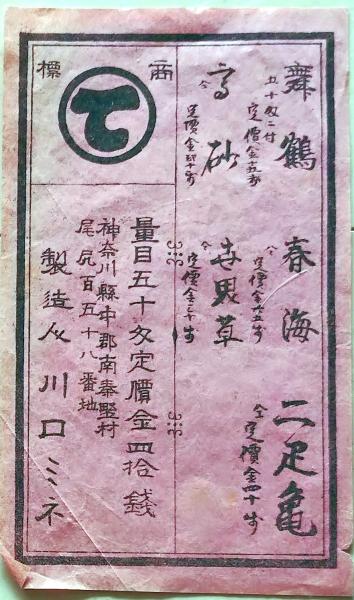 舞鶴
五十匁ニ付
定價金十五戔
春海
仝
定價金廿五戔
二疋亀
仝
定價金四十戔
高砂
仝
定價金
草
仝
定價金三十戔
商標
て
量目五十匁定價金四拾錢
神奈川縣中郡南秦野村
尾尻百五十八番地
製造人川口ミネ